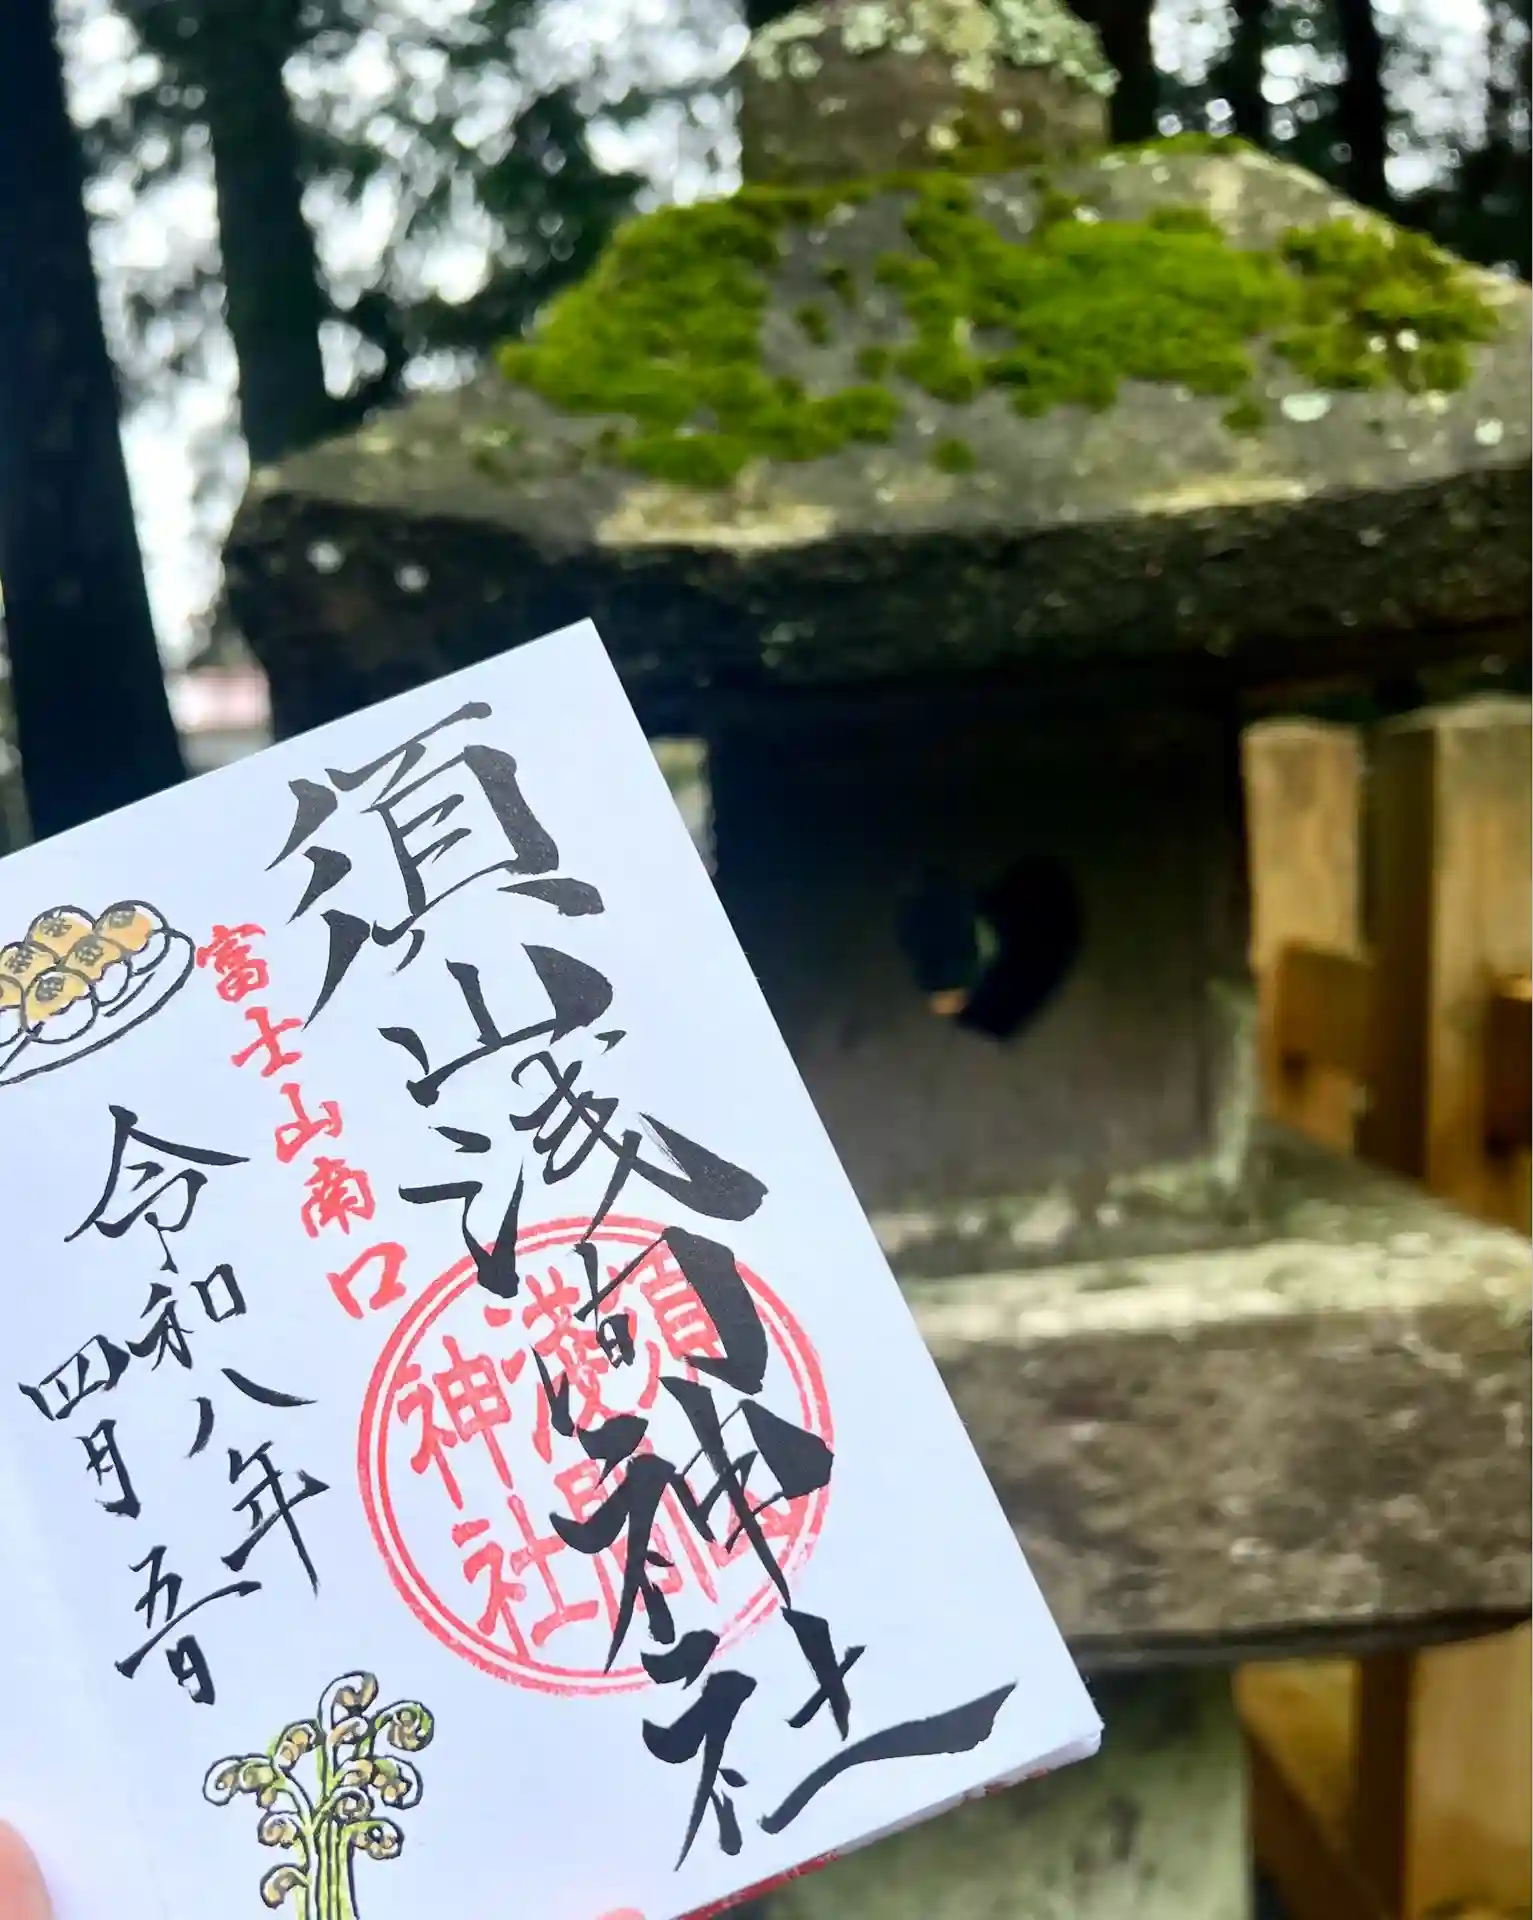 須山浅間神社
富士山南口
須山
浅間
神社
令和八年
四月五日